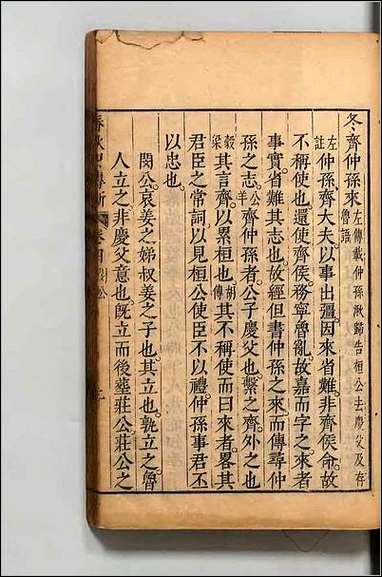 冬齊仲孫來左傳載仲孫湫歸告桓公去慶父及存魯語
左註仲孫齊大夫以事出疆因來省難非齊侯命故
不稱使也還使齊侯務寧魯亂故嘉而字之來者
事實省難其志也故經但書仲孫之來而傳尋仲
孫之志公羊齊仲孫者公子慶父也繫之齊外之也
穀梁其言齊以累桓也胡傳其不稱使而曰來者畧其
君臣之常詞以見桓公使臣不以禮仲孫事君不
以忠也
閔公哀姜之娣叔姜之子也其立也孰立之魯
人立之非慶父意也旣立而後塟莊公莊公之
春秋四傳斷 卷四 閔公